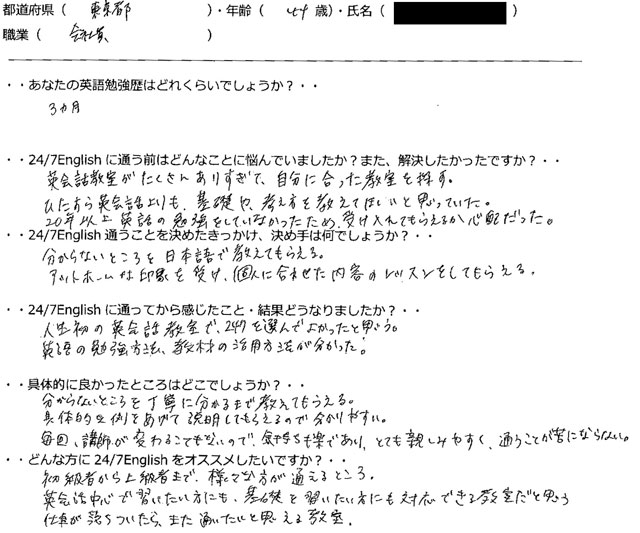 都道府県（ 東京都 ）・年齢（ 49 歳）・氏名（
職業（ 会社員 ）
・・あなたの英語勉強歴はどれくらいでしょうか？・・
3ヵ月
・・24/7English に通う前はどんなことに悩んでいましたか？また、解決したかったですか？・・
英会話教室がたくさんありすぎて、自分に合った教室を探す。
ひたすら英会話よりも、基礎や、考え方を教えてほしいと思っていた。
20年以上英語の勉強をしていなかったため、受け入れてもらえるか心配だった。
・・24/7English 通うことを決めたきっかけ、決め手は何でしょうか？・・
分からないところを日本語で教えてもらえる。
アットホームな印象を受け、個人に合わせた内容のレッスンをしてもらえる。
・・24/7English に通ってから感じたこと・結果どうなりましたか？・・
人生初の英会話教室で、24/7を選んでよかったと思う。
英語の勉強方法、教材の活用方法が分かった！
・・具体的に良かったところはどこでしょうか？・・
分からないところを丁寧に分かるまで教えてもらえる。
具体的な例をあげて説明してもらえるので分かりやすい。
毎回、講師が変わることもないので、気持ちも楽であり、とても親しみやすく、通うことが苦にならない。
・・どんな方に 24/7English をオススメしたいですか？・・
初級者から上級者まで、様々な方が通えるところ。
英会話中心で習いたい方にも、基礎を習いたい方にも対応できる教室だと思う
仕事が落ちついたら、また通いたいと思える教室。